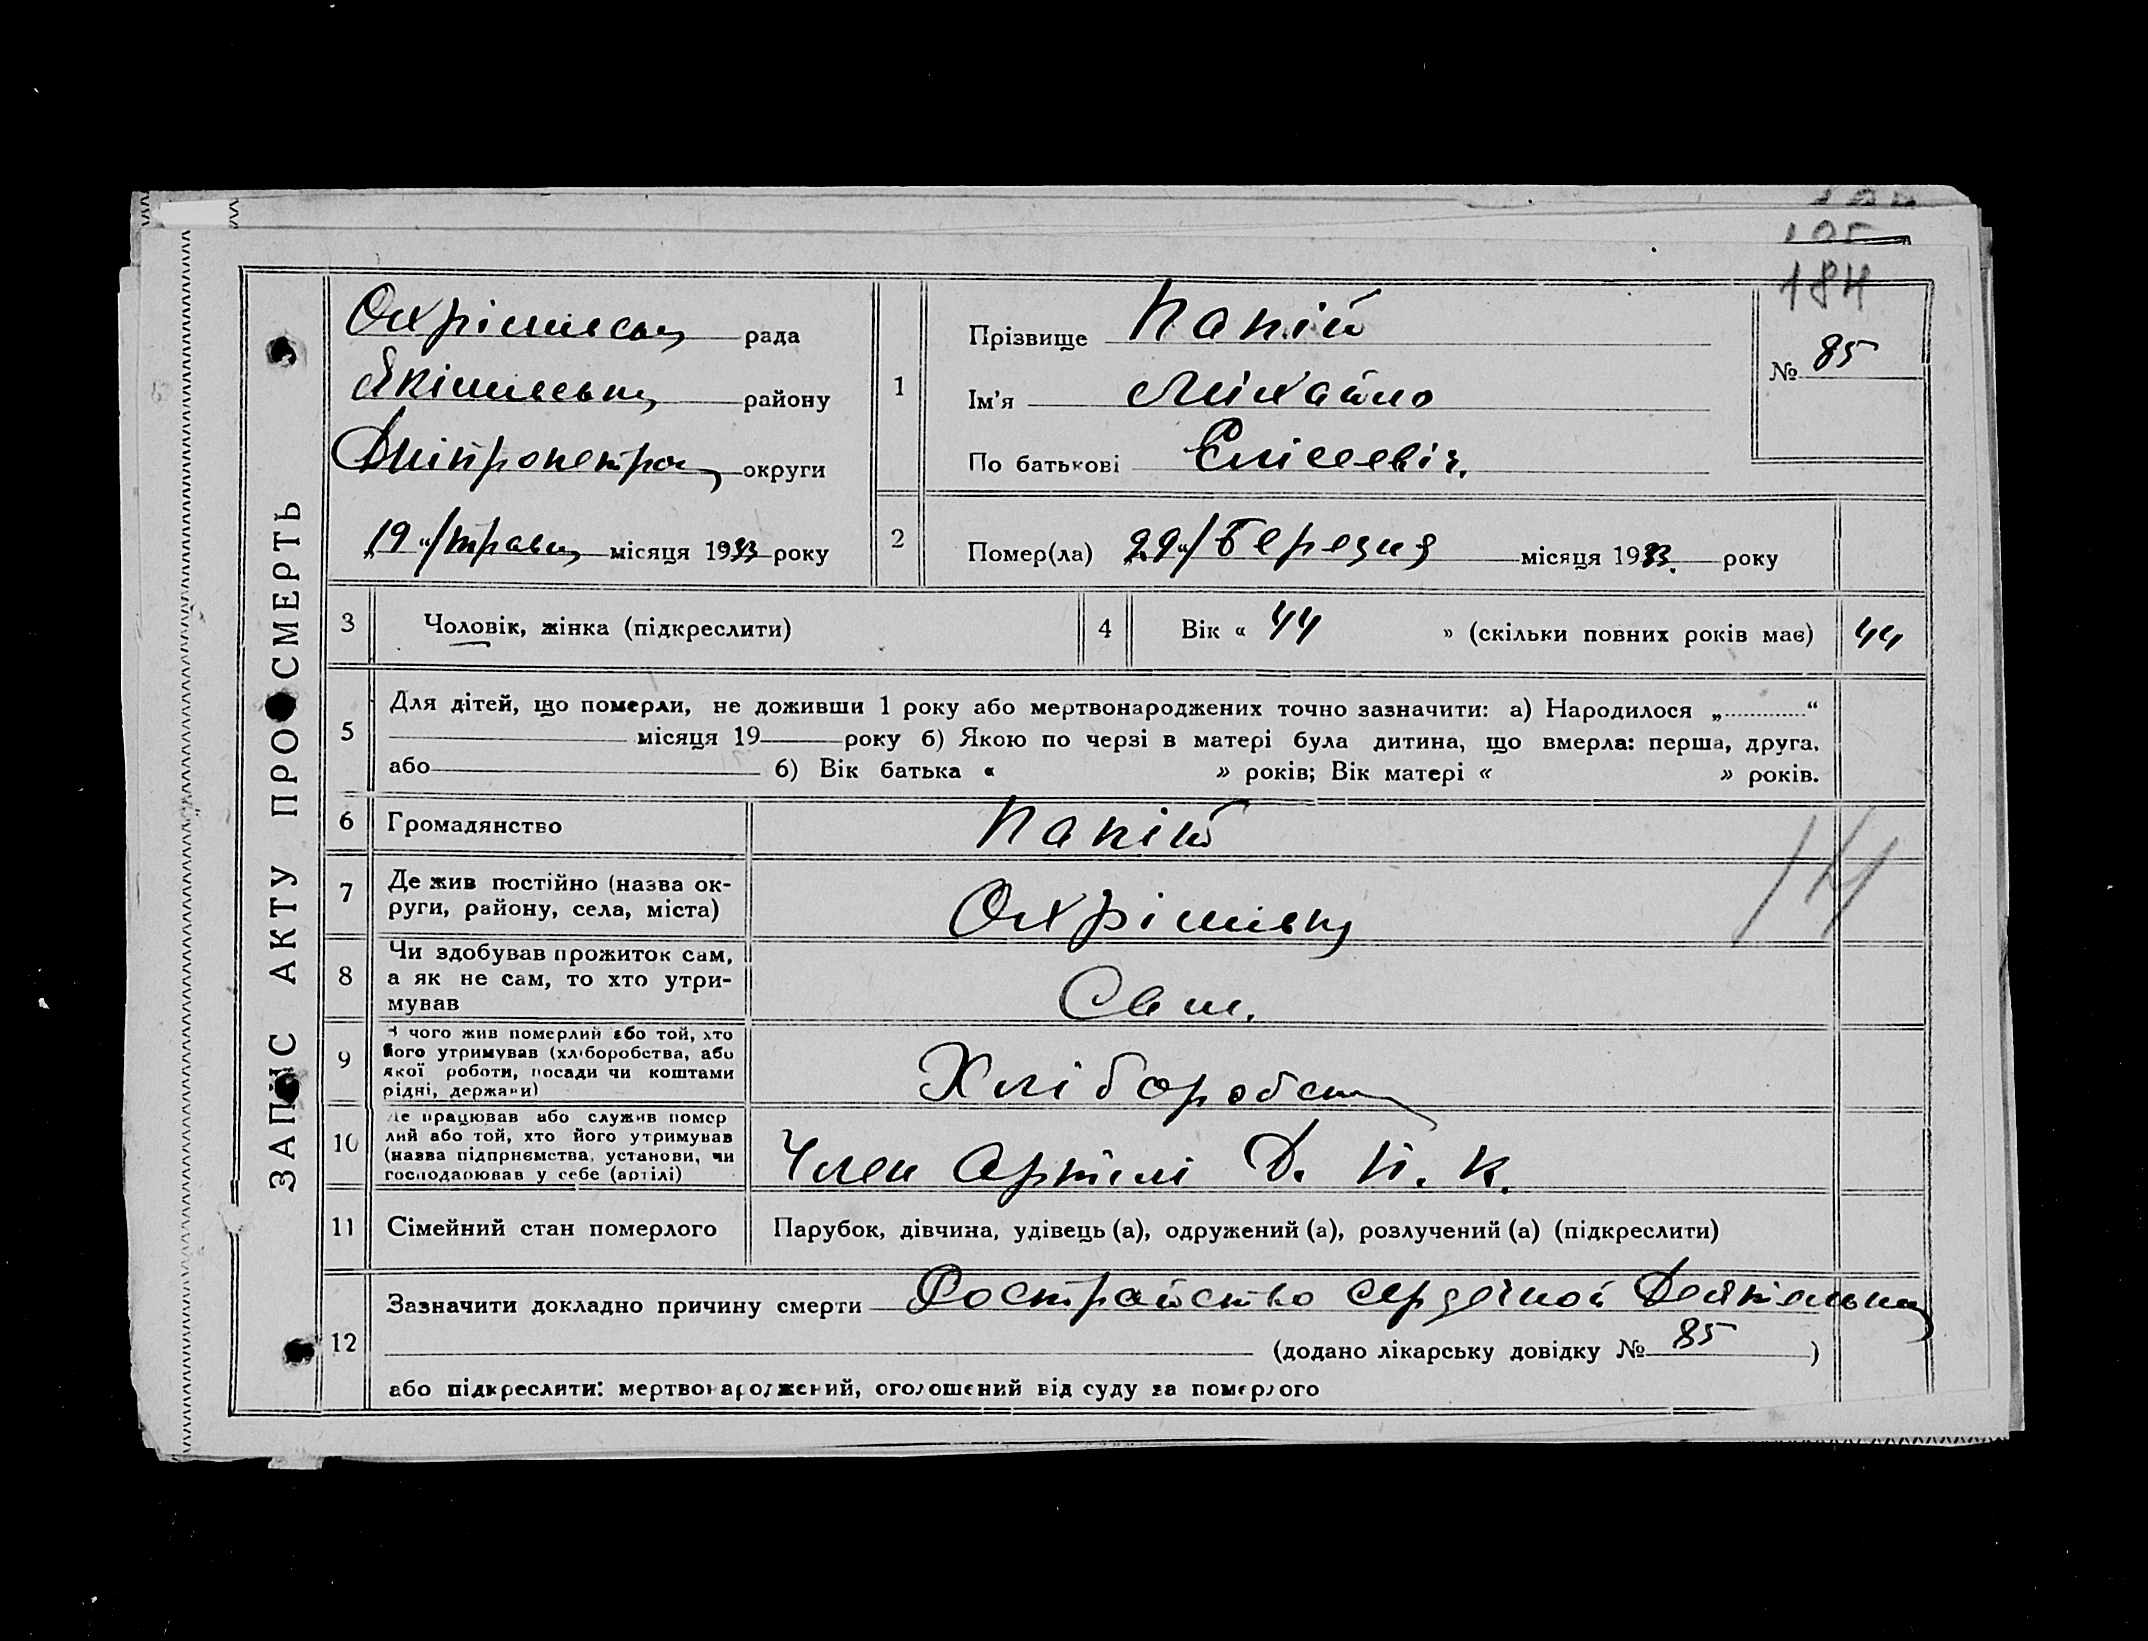 184
ЗАПИС АКТУ ПРО СМЕРТЬ
Охрімивськ рада
Якімивськ району
Дніпропетров округи
„19“/ травн місяця 1933 року
1
Прізвище Папій
Ім'я Міхайло
По батькові Єлісеевіч.
№ 85
2
Помер(ла) „29“/ Березня місяця 1933. року
3 Чоловік, жінка (підкреслити)
4 Вік « 44 » (скільки повних років має) 44
5
Для дітей, що померли, не доживши 1 року або мертвонароджених точно зазначити: а) Народилося „ “
місяця 19 року б) Якою по черзі в матері була дитина, що вмерла: перша, друга,
або б) Вік батька « » років; Вік матері « » років.
6 Громадянство Папій
7 Де жив постійно (назва ок-
руги, району, села, міста) Охрімивк
14
8 Чи здобував прожиток сам,
а як не сам, то хто утри-
мував Сам.
9 З чого жив померлий або той, хто
його утримував (хліборобства, або
якої роботи, посади чи коштами
рідні, держави) Хліборобст
10 Де працював або служив помер
лий або той, хто його утримував
(назва підприємства, установи, чи
господарював у себе (артілі) Член Артілі Д. П. К.
11 Сімейний стан померлого Парубок, дівчина, удівець (а), одружений (а), розлучений (а) (підкреслити)
12
Зазначити докладно причину смерти Росстрайство сердечной Деятельн
(додано лікарську довідку № 85 )
або підкреслити: мертвонароджений, оголошений від суду за померлого